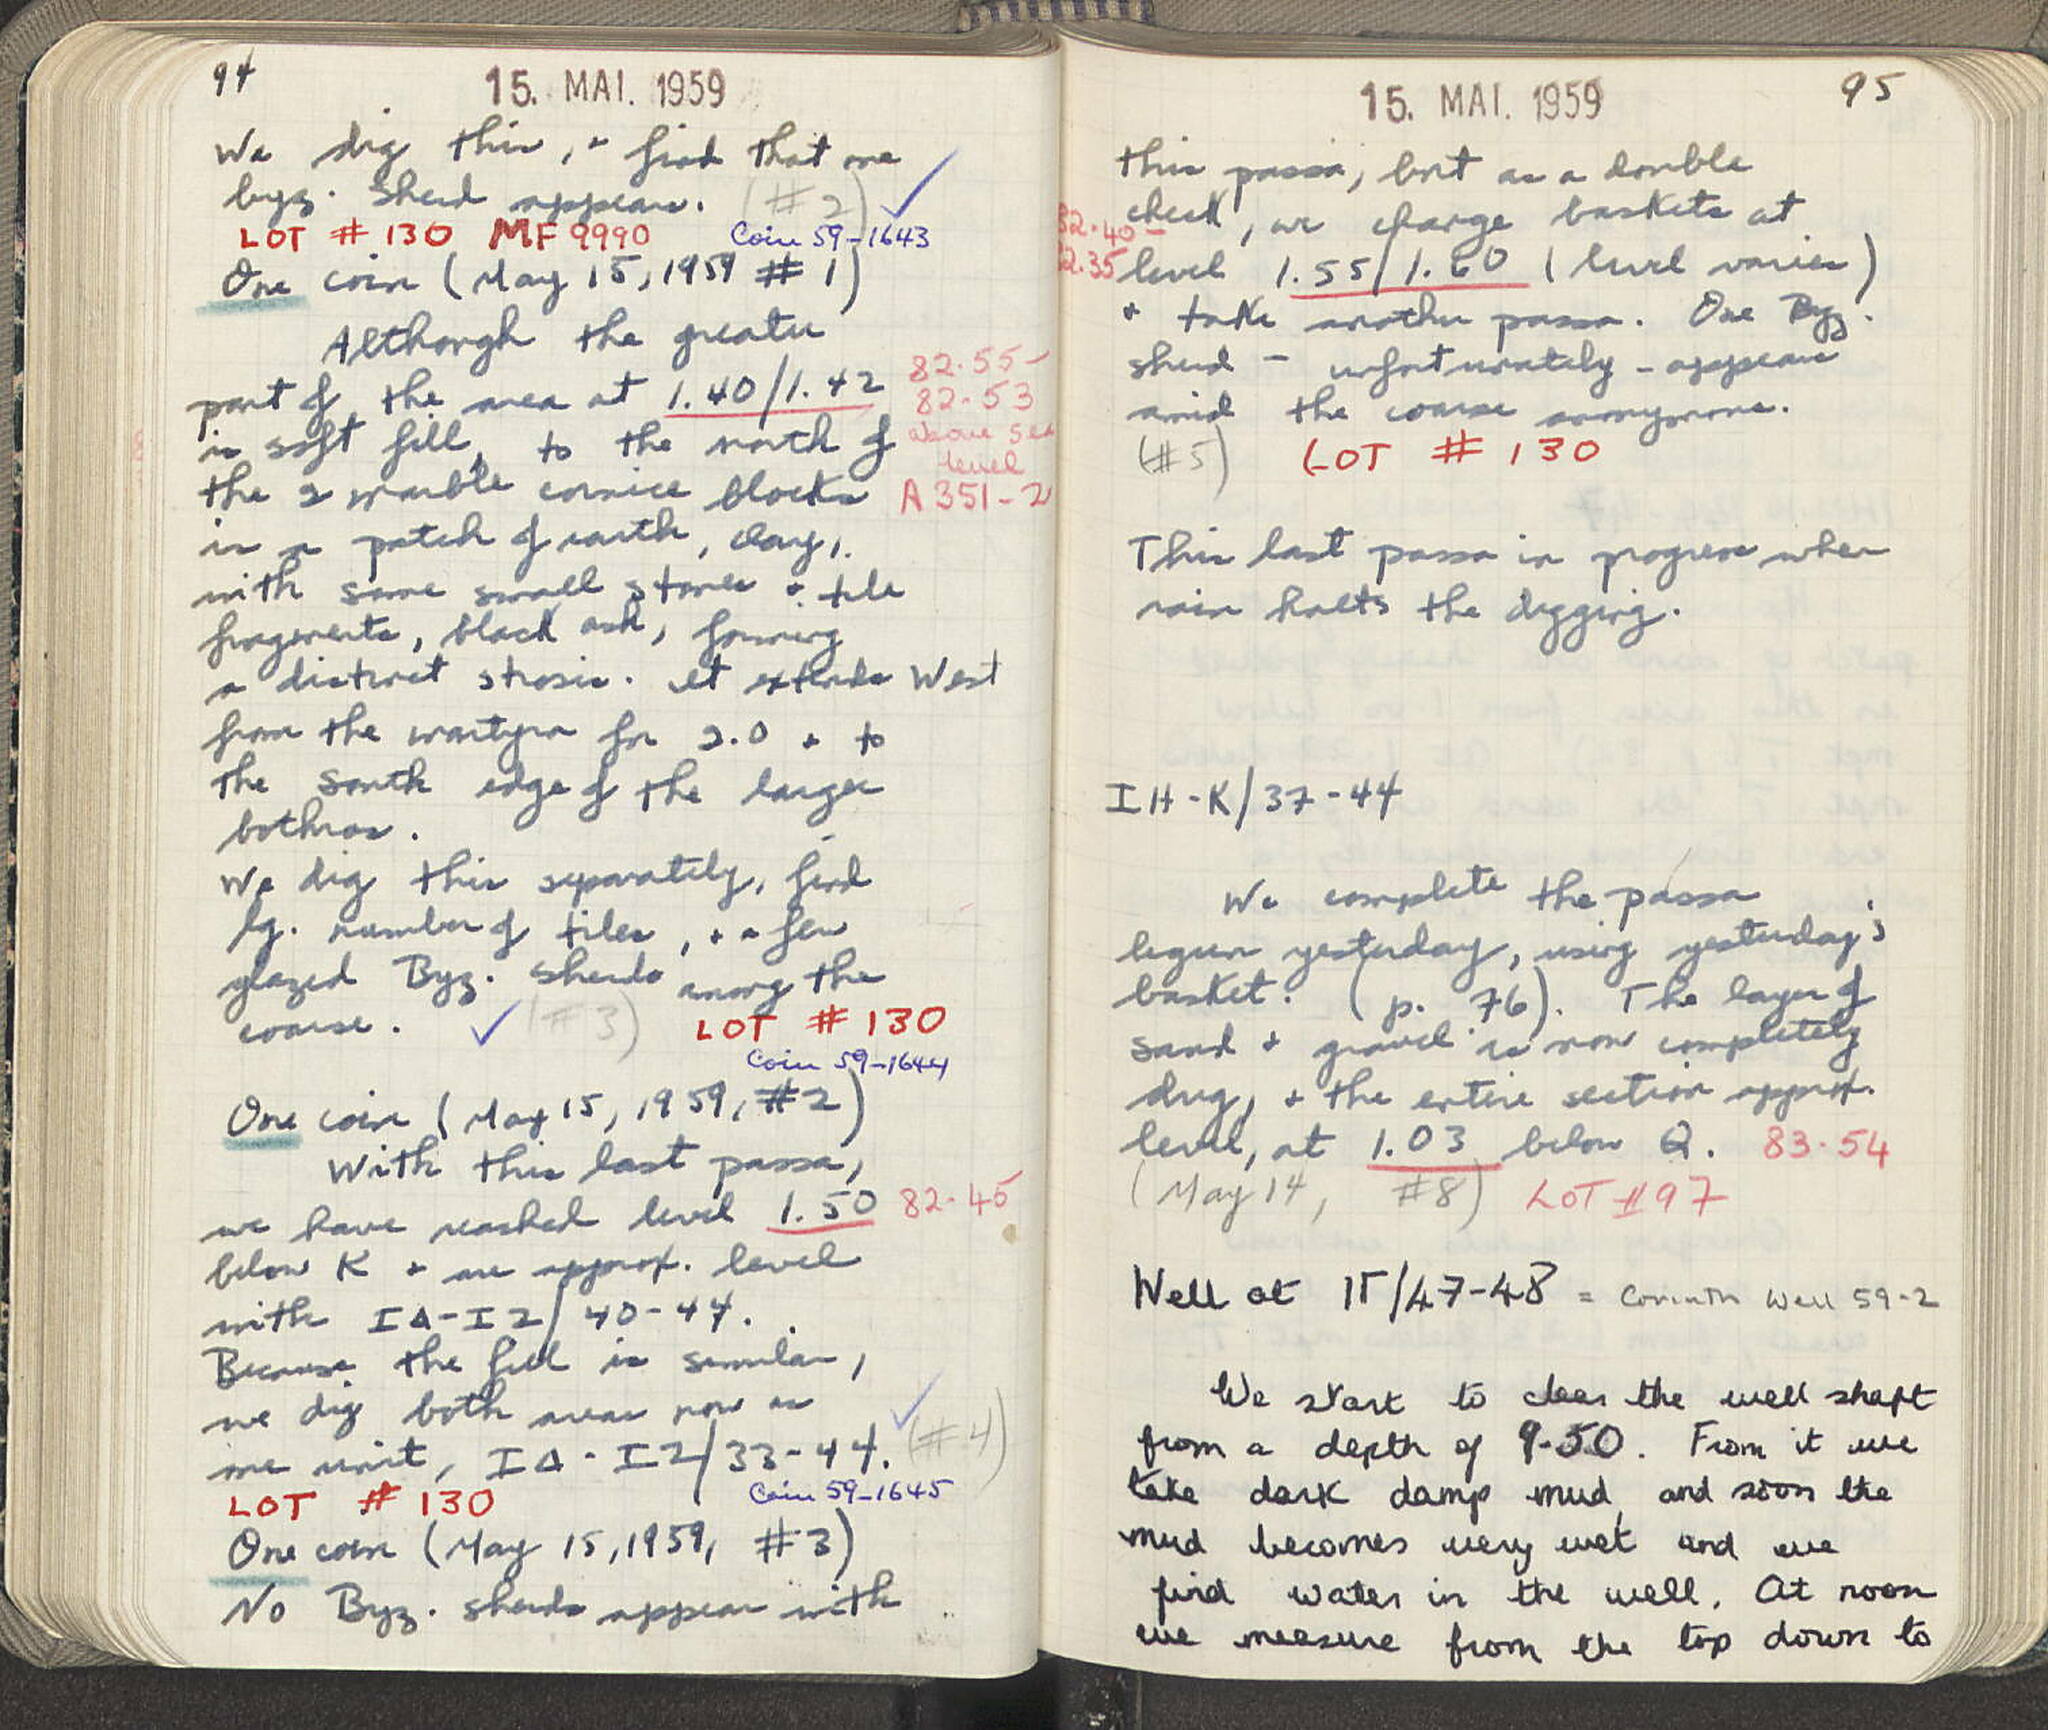 94
15. MAI. 1959
We dig this, + find that one
byz. sherd appears. (#2)
LOT # 130 MF 9990 Coin 59-1643
One coin (May 15, 1959 # 1)
Although the greater
part of the area at 1.40/1.42 82.55-
82.53
is soft fill, to the north of above sea
level
the 2 marble cornice blocks A 351-2
is a patch of earth, clay,
with some small stones + tile
fragments, black ash, forming
a distinct strosis. It extends West
from the martyra for 2.0 + to
the south edge of the larger
bothros.
We dig this separately, find
lg. number of tiles, + a few
glazed Byz. sherds among the
coarse. (#3) LOT # 130
Coin 59-1644
One coin (May 15, 1959, #2)
With this last passa,
we have reached level 1.50 82.45
below K + are approx. level
with IΔ-IZ/40-44.
Because the fill is similar,
we dig both areas now as
one unit, IΔ-IZ/33-44. (#4)
LOT # 130 Coin 59-1645
One coin (May 15, 1959, #3)
No Byz. sherds appear with
95
15. MAI. 1959
this passa, but as a double
check, we change baskets at
82.40-
82.35 level 1.55/1.60 (level varies)
+ take another passa. One Byz.
sherd - unfortunately - appears
amid the coarse anonymous.
(#5) LOT # 130
This last passa in progress when
rain halts the digging.
IH-K/37-44
We complete the passa
begun yesterday, using yesterday's
basket. (p. 76). The layer of
sand + gravel is now completely
dug, + the entire section approx.
level, at 1.03 below Q. 83.54
(May 14, #8) LOT #97
Well at IΓ/47-48 = Corinth Well 59-2
We start to clear the well shaft
from a depth of 9.50. From it we
take dark damp mud, and soon the
mud becomes very wet and we
find water in the well. At noon
we measure from the top down to